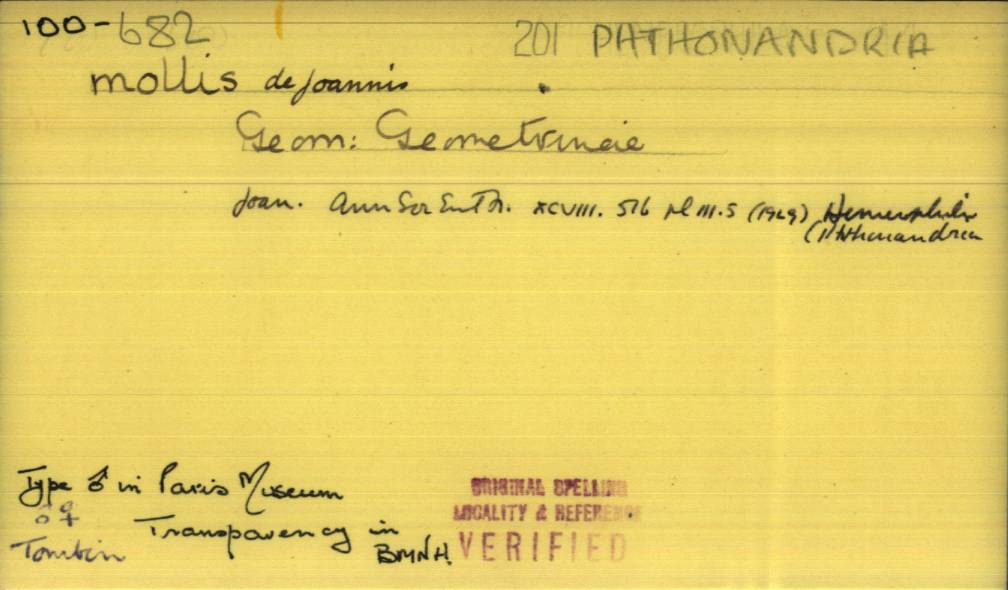 100-682
201 PHTHONANDRIA
mollis de Joannis
Geom: Geometrinae
Joan. Ann Soc Ent Fr. XCVIII. 516 pl III.5 (1929) Hemerophila
(Phthonandria
Type ♂ in Paris Museum
♂♀
Transparency in
Tonkin
BMNH.
ORIGINAL SPELLING
LOCALITY & REFERENCE
VERIFIED